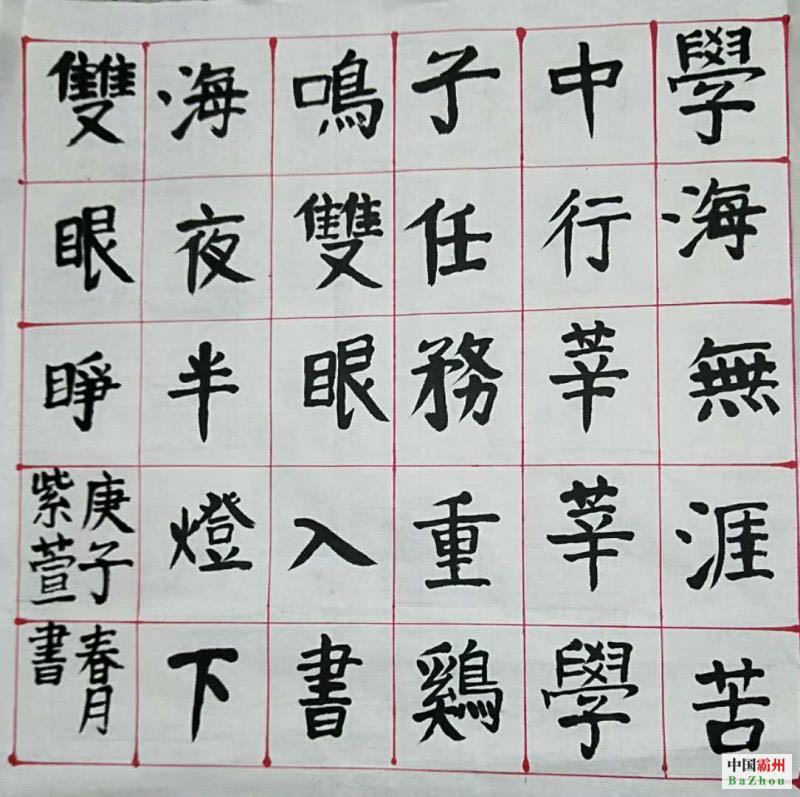 學海無涯苦
中行莘莘學
子任務重鷄
鳴雙眼入書
海夜半燈下
雙眼睜
庚子春月
紫萱書
中国霸州
BaZhou